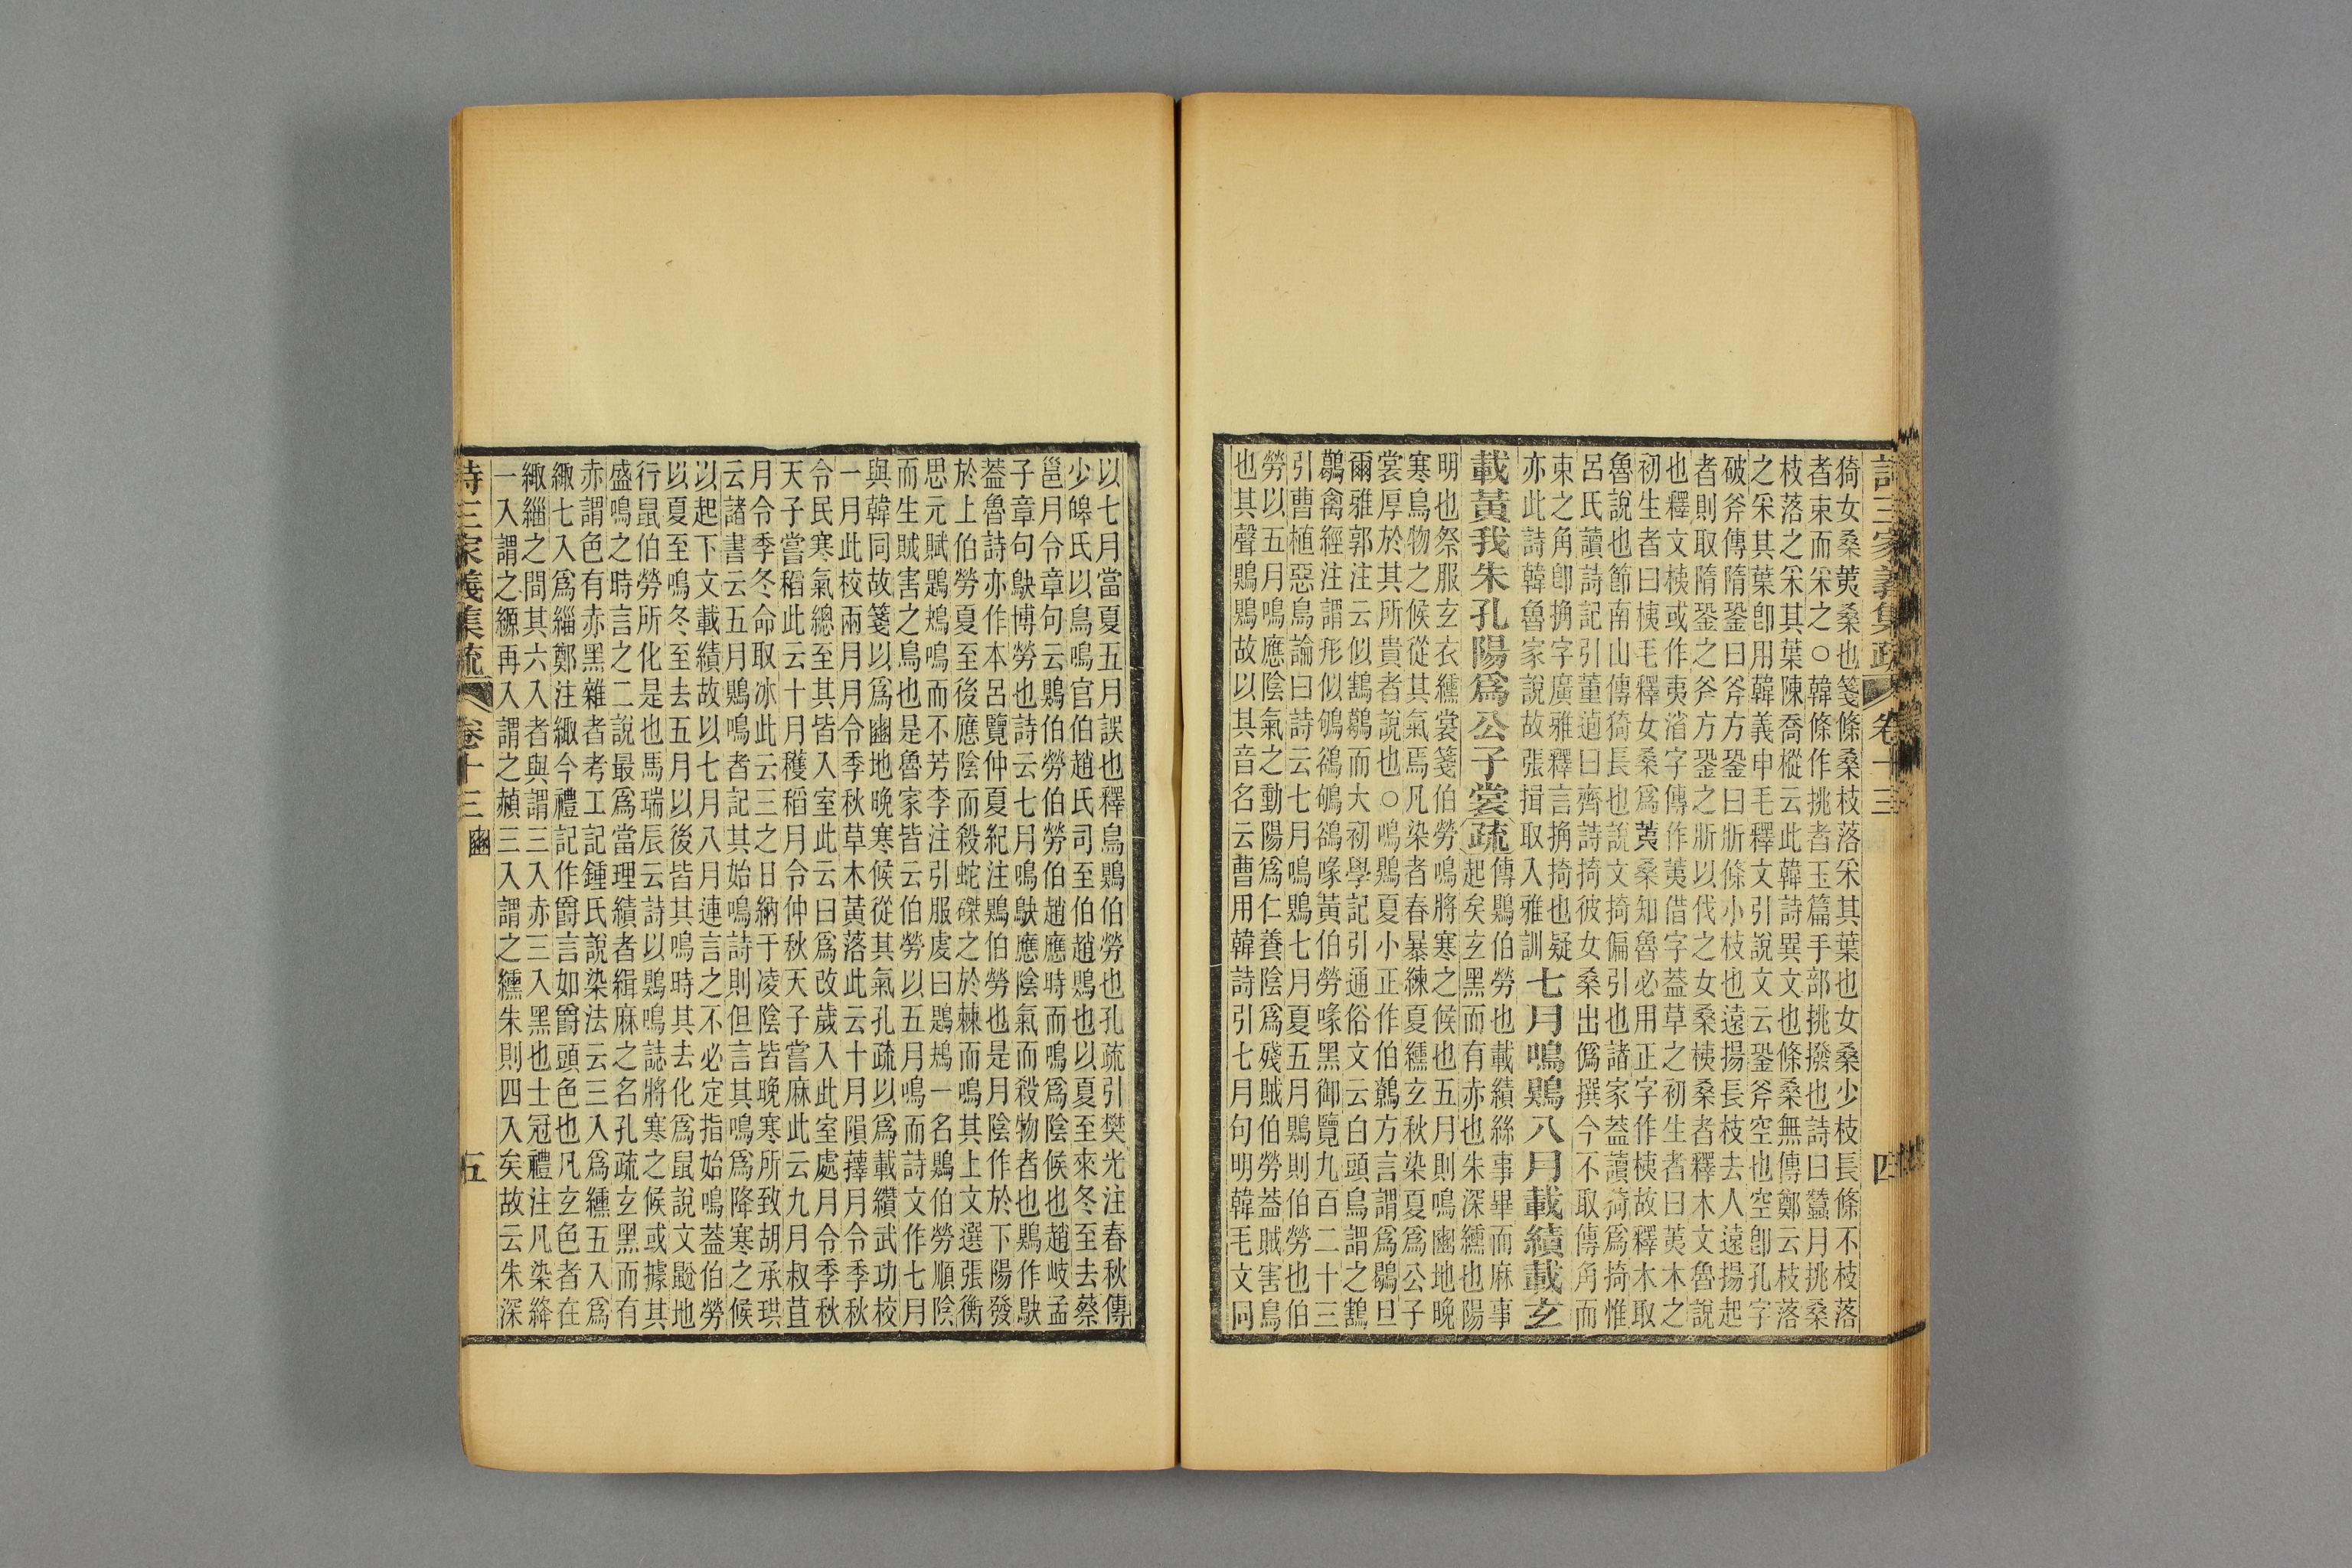 詩三家義集疏 卷十三 四
猗女桑荑桑也箋條桑枝落采其葉也女桑少枝長條不枝落
者束而采之○韓條作挑者玉篇手部挑撥也詩曰蠶月挑桑
枝落之采其葉陳喬樅云此韓詩異文也條桑無傳鄭云枝落
之采其葉卽用韓義申毛釋文引說文云銎斧空也空卽孔字
破斧傳隋銎曰斧方銎曰斨條小枝也遠揚長枝去人遠揚起
者則取隋銎之斧方銎之斨以伐之女桑桋桑者釋木文魯說
也釋文桋或作夷渻字傳作荑借字蓋草之初生者曰荑木之
初生者曰桋毛釋女桑爲荑桑知魯必用正字作桋故釋木取
魯說也節南山傳猗長也說文掎偏引也諸家蓋讀猗爲掎惟
呂氏讀詩記引董逌曰齊詩掎彼女桑出僞撰今不取傳角而
束之角卽捔字廣雅釋言捔掎也疑
亦此詩韓魯家說故張揖取入雅訓七月鳴鵙八月載績載玄
載黃我朱孔陽爲公子裳疏傳鵙伯勞也載績絲事畢而麻事
起矣玄黑而有赤也朱深纁也陽
明也祭服玄衣纁裳箋伯勞鳴將寒之候也五月則鳴豳地晚
寒鳥物之候從其氣焉凡染者春暴練夏纁玄秋染夏爲公子
裳厚於其所貴者說也○鳴鵙夏小正作伯鷯方言謂爲鶡旦
爾雅郭注云似鶷鶡而大初學記引通俗文云白頭鳥謂之鶷
鶡禽經注謂形似鴝鵒鴝鵒喙黃伯勞喙黑御覽九百二十三
引曹植惡鳥論曰詩云七月鳴鵙七月夏五月鵙則伯勞也伯
勞以五月鳴應陰氣之動陽爲仁養陰爲殘賊伯勞蓋賊害鳥
也其聲鵙鵙故以其音名云曹用韓詩引七月句明韓毛文同
以七月當夏五月誤也釋鳥鵙伯勞也孔疏引樊光注春秋傳
少皞氏以鳥鳴官伯趙氏司至伯趙鵙也以夏至來冬至去蔡
邕月令章句云鵙伯勞伯勞伯趙應時而鳴爲陰候也趙岐孟
子章句鴃博勞也詩云七月鳴鴃應陰氣而殺物者也鵙作鴃
蓋魯詩亦作本呂覽仲夏紀注鵙伯勞也是月陰作於下陽發
於上伯勞夏至後應陰而殺蛇磔之於棘而鳴其上文選張衡
思元賦鶗鴂鳴而不芳李注引服虔曰鶗鴂一名鵙伯勞順陰
而生賊害之鳥也是魯家皆云伯勞以五月鳴而詩文作七月
與韓同故箋以爲豳地晚寒候從其氣孔疏以爲載纘武功校
一月此校兩月月令季秋草木黃落此云十月隕蘀月令季秋
令民寒氣總至其皆入室此云曰爲改歲入此室處月令季秋
天子嘗稻此云十月穫稻月令仲秋天子嘗麻此云九月叔苴
月令季冬命取冰此云三之日納于凌陰皆晚寒所致胡承珙
云諸書云五月鵙鳴者記其始鳴詩則但言其鳴爲降寒之候
以起下文載績故以七月八月連言之不必定指始鳴蓋伯勞
以夏至鳴冬至去五月以後皆其鳴時其去化爲鼠說文鼢地
行鼠伯勞所化是也馬瑞辰云詩以鵙鳴誌將寒之候或據其
盛鳴之時言之二說最爲當理績者緝麻之名孔疏玄黑而有
赤謂色有赤黑雜者考工記鍾氏說染法云三入爲纁五入爲
緅七入爲緇鄭注緅今禮記作爵言如爵頭色也凡玄色者在
緅緇之間其六入者與謂三入亦三入黑也士冠禮注凡染絳
一入謂之縓再入謂之赬三入謂之纁朱則四入矣故云朱深
詩三家義集疏 卷十三 豳 五